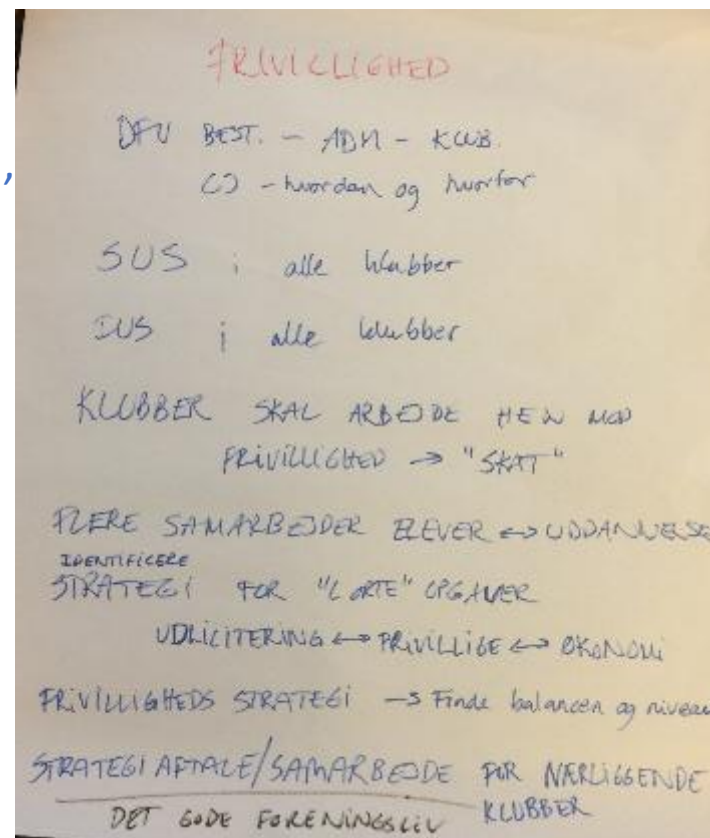 FRIVILLIGHED
DFU BEST. - ADM - KLUB.
- hvordan og hvorfor
SUS i alle klubber
IUS i alle klubber
KLUBBER SKAL ARBEJDE HEN MOD
FRIVILLIGHED → "SKAT"
FLERE SAMARBEJDER ELEVER ↔ UDDANNELSE
IDENTIFICERE
STRATEGI FOR "LORTE" OPGAVER
UDLICITERING ↔ FRIVILLIGE ↔ ØKONOMI
FRIVILLIGHEDS STRATEGI → Finde balancen og niveau
STRATEGI AFTALE/SAMARBEJDE FOR NÆRLIGGENDE
KLUBBER
DET GODE FORENINGSLIV